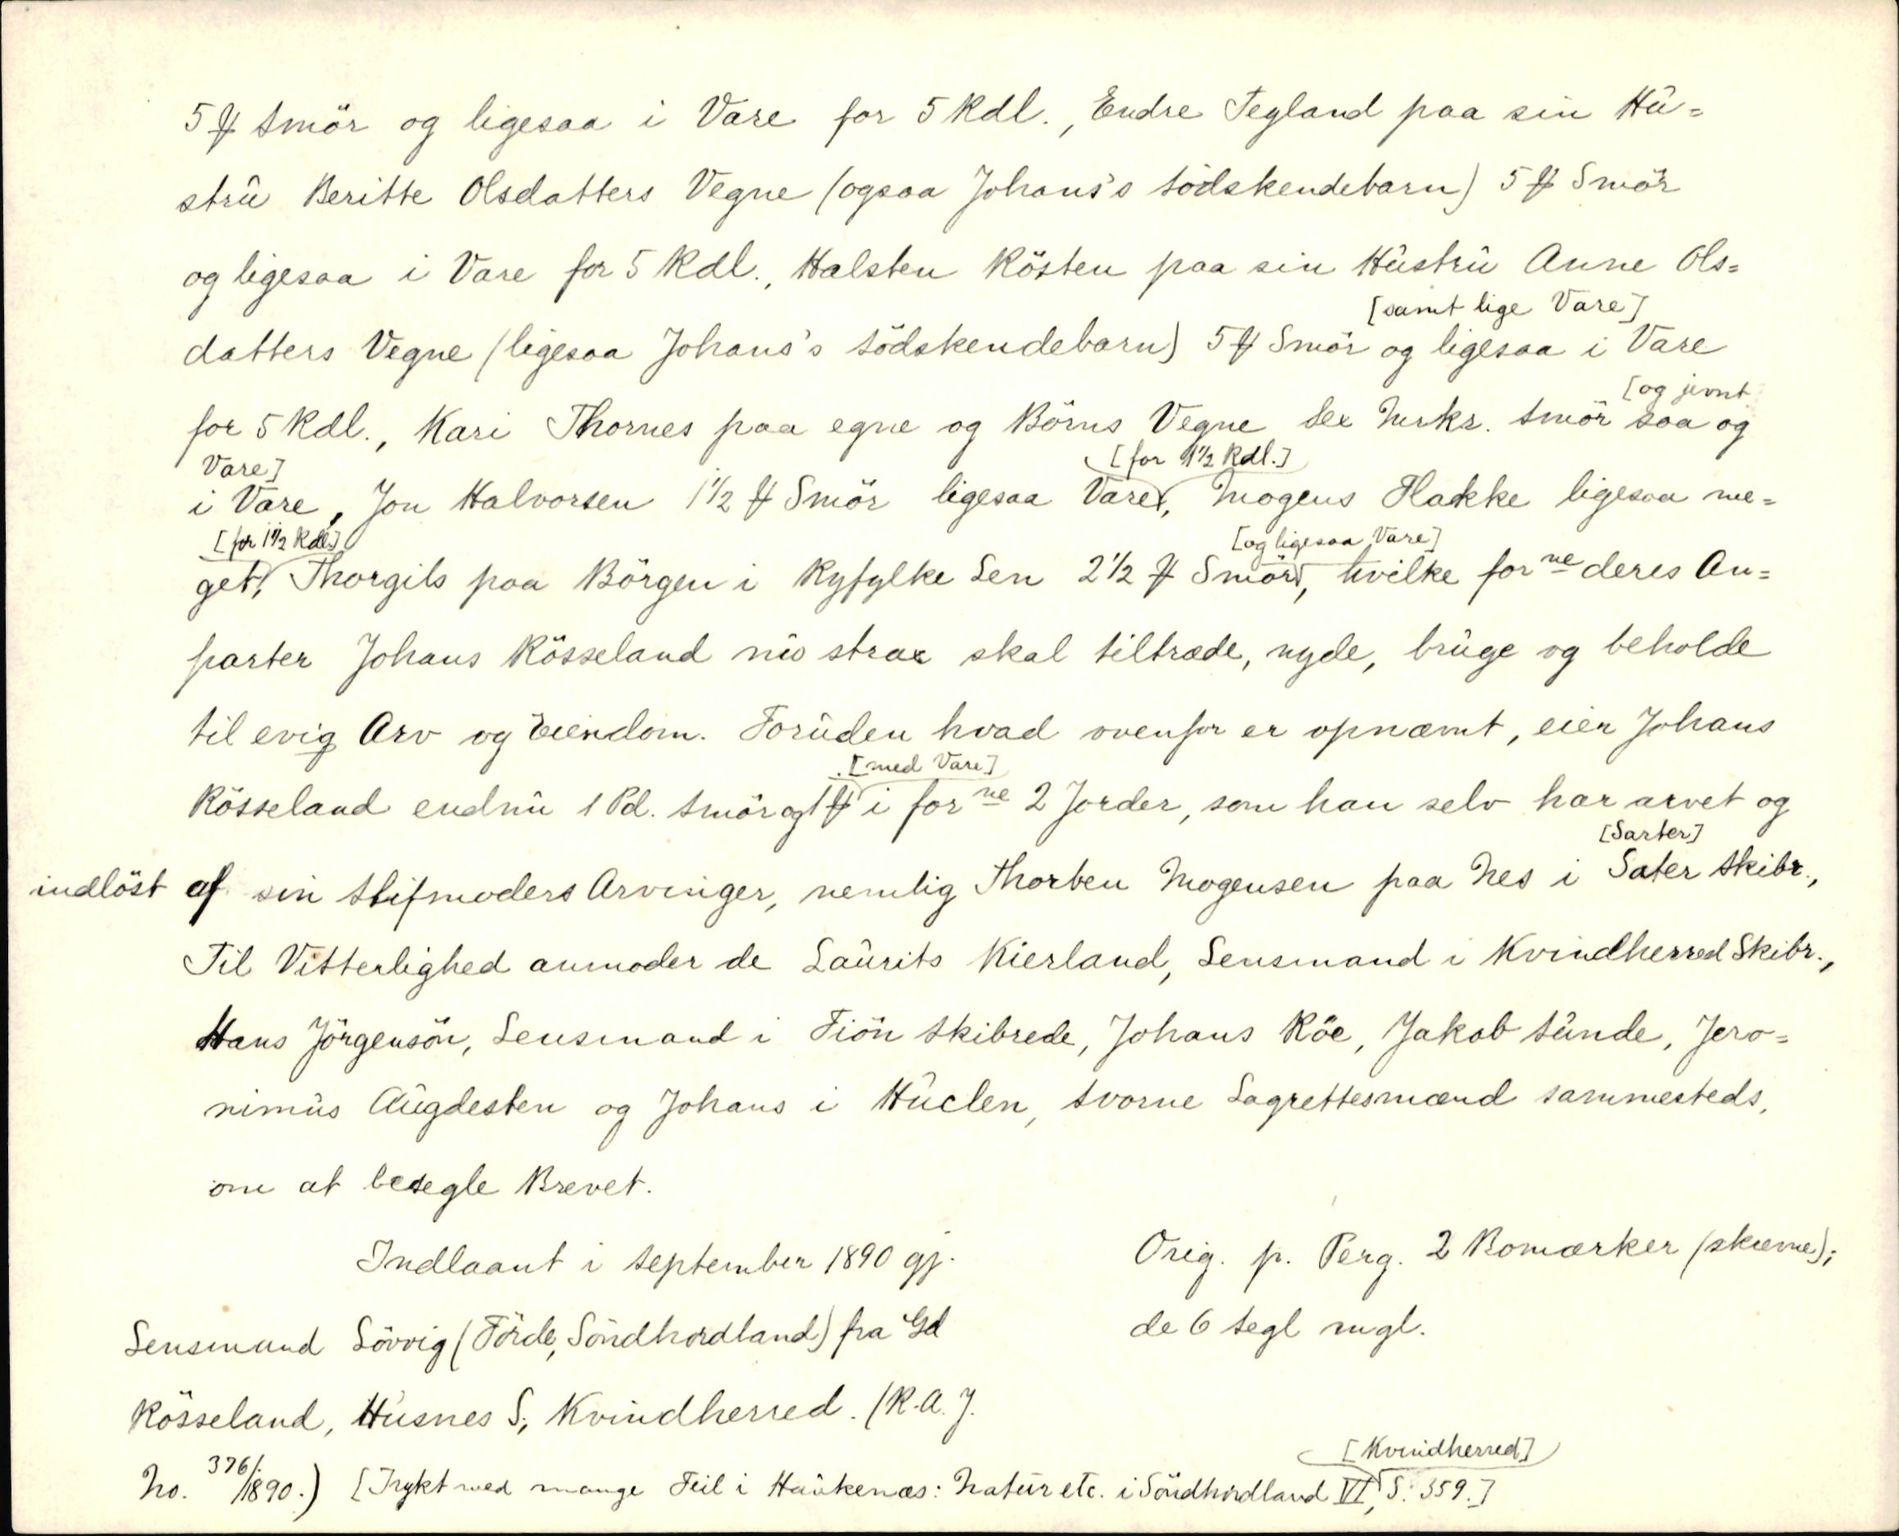 5 ℔ Smör og ligesaa i Vare for 5 Rdl., Endre Tegland paa sin Hu=
stru Beritte Olsdatters Vegne (ogsaa Johans's Södskendebarn) 5 ℔ Smör
og ligesaa i Vare for 5 Rdl., Halsten Rösten paa sin Hustru Anne Ols=
[samt lige Vare]
datters Vegne (ligesaa Johans's Södskendebarn) 5 ℔ Smör og ligesaa i Vare
[og jevnt
for 5 Rdl., Kari Thornes paa egne og Börns Vegne sex Mrkr. Smör saa og
Vare] [for 1 1/2 Rdl.]
i Vare, Jon Halvorsen 1 1/2 ℔ Smör ligesaa Vare, Mogens Hakke ligesaa me=
[for 1 1/2 Rdl.] [og ligesaa Vare]
get, Thorgils paa Börgen i Ryfylke Len 2 1/2 ℔ Smör, hvilke forne deres An=
parter Johans Rösseland nu strax skal tiltræde, nyde, bruge og beholde
til evig Arv og Eiendom. Foruden hvad ovenfor er opnæmt, eier Johans
[med Vare]
Rösseland endnu 1 Pd. Smör og 1 ℔ i forne 2 Jorder, som han selv har arvet og
[Sarter]
indlöst af sin Stifmoders Arvinger, nemlig Thorben Mogensen paa Nes i Sater Skibr.,
Til Vitterlighed anmoder de Laurits Kierland, Lensmand i Kvindherred Skibr.,
Hans Jörgensön, Lensmand i Fiön Skibrede, Johans Röe, Jakob Sunde, Jero=
nimus Augdesten og Johans i Huclen, svorne Lagrettesmænd sammesteds,
om at besegle Brevet.
Indlaant i September 1890 gj.
Lensmand Lövvig (Förde, Söndhordland) fra Gd
Rösseland, Husnes S., Kvindherred. (R.A.J.
No. 376/1890.)
Orig. p. Perg. 2 Bomærker (skrevne);
de 6 Segl mgl.
[Kvindherred]
[Trykt med mange Feil i Haukenæs: Natur etc. i Söndhordland VI, S. 359.]